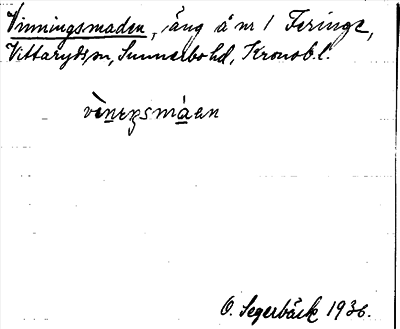 Vinningsmaden, äng å nr 1 Feringe,
Vittarydsn, Sunnerbo hd, Kronob. l.
vìneŋsmáen
O. Segerbäck 1936.